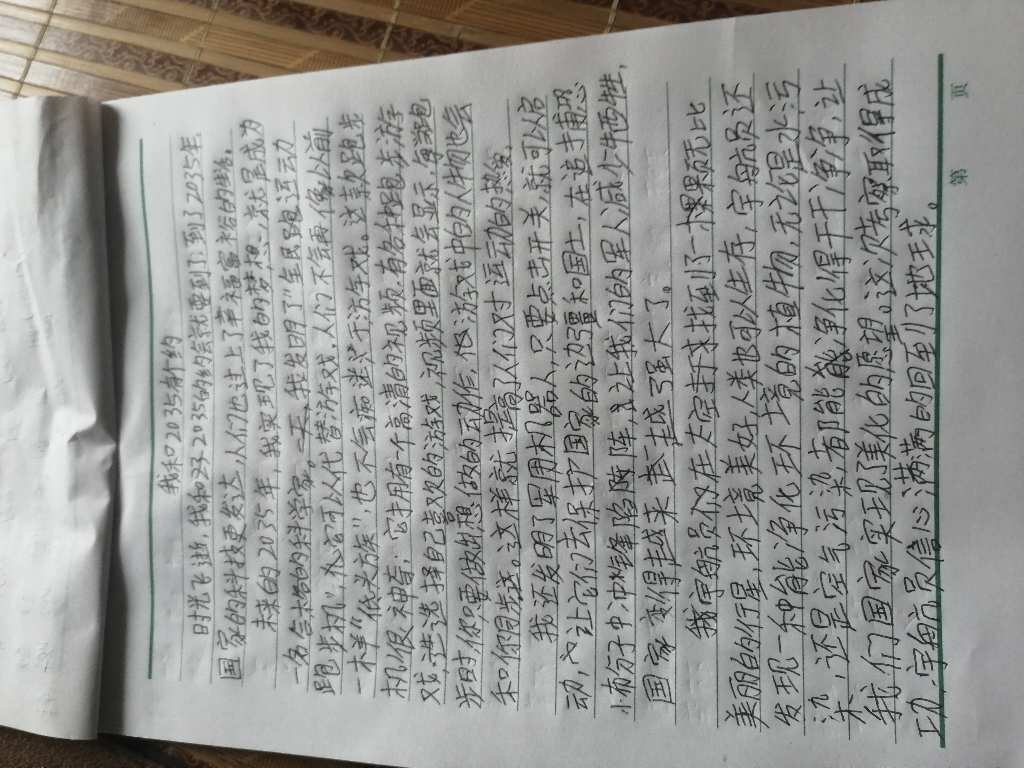 我和2035有个约
时光飞逝,我和2022 2035的约会就要到了,到了2035年,
国家的科技更发达,人们也过上了幸福富裕的生活。
未来的2035年,我实现了我的梦想,就是成为
一名合格的科学家。一天,我发明了“全民跑运动
跑步机”,不它可以代替游戏,人们不需再像从前
一样“低头族”,也不会痴迷于游手戏。这款跑步
机很神奇,它拥有一个高清的视频,有各种跑步游手
戏,先选择自己喜欢的游戏,视频里面就会显示,每次跑
步时你要做出想做的动作,但游戏中的人物也会
和你用步走。这样就提高了人们对运动的热爱,
我还发明了军用机器人,只要点击开关,就可以启
动,它让它们去保护国家的边疆和国土,在造于前功
小布分子中冲锋陷阵,免让我们的军人减个牛牺牲,
国家变得越来走越了强大了。
我宇航员们又在太空寻找找到了一颗颗无比
美丽的行星,环境美好,人类也可以生存,宇航员还
发现一种能净化环境的植物,无论是水污
染,还是空气污染都能能净化得干干净净,让
我们国家实现了美化的愿望。这次考察取得成
功,宇航员信心满满的回到了地球。
第 页